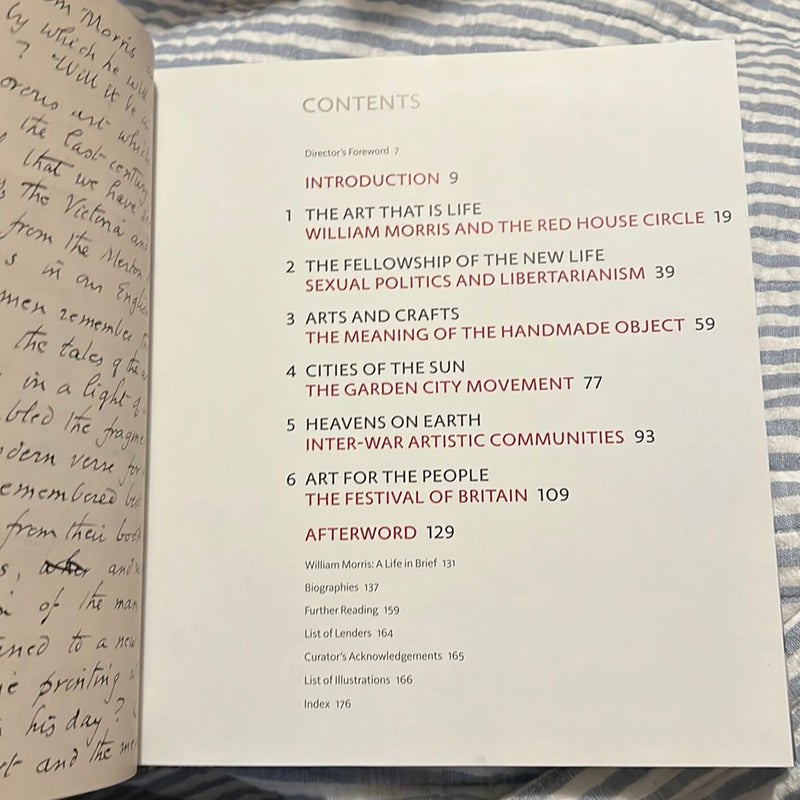 m Morris
by which he will
? Will it be a
orous art which
the last century
that we have
The Victoria and
from the Merton
s in an English
men remember
the tales of the
in a light of
bled the
odern verse for
emembered
from their books
s, and
of the man
ned to a new
printing
his day?
and the
CONTENTS
Director's Foreword 7
INTRODUCTION 9
1 THE ART THAT IS LIFE
WILLIAM MORRIS AND THE RED HOUSE CIRCLE 19
2 THE FELLOWSHIP OF THE NEW LIFE
SEXUAL POLITICS AND LIBERTARIANISM 39
3 ARTS AND CRAFTS
THE MEANING OF THE HANDMADE OBJECT 59
4 CITIES OF THE SUN
THE GARDEN CITY MOVEMENT 77
5 HEAVENS ON EARTH
INTER-WAR ARTISTIC COMMUNITIES 93
6 ART FOR THE PEOPLE
THE FESTIVAL OF BRITAIN 109
AFTERWORD 129
William Morris: A Life in Brief 131
Biographies 137
Further Reading 159
List of Lenders 164
Curator's Acknowledgements 165
List of Illustrations 166
Index 176